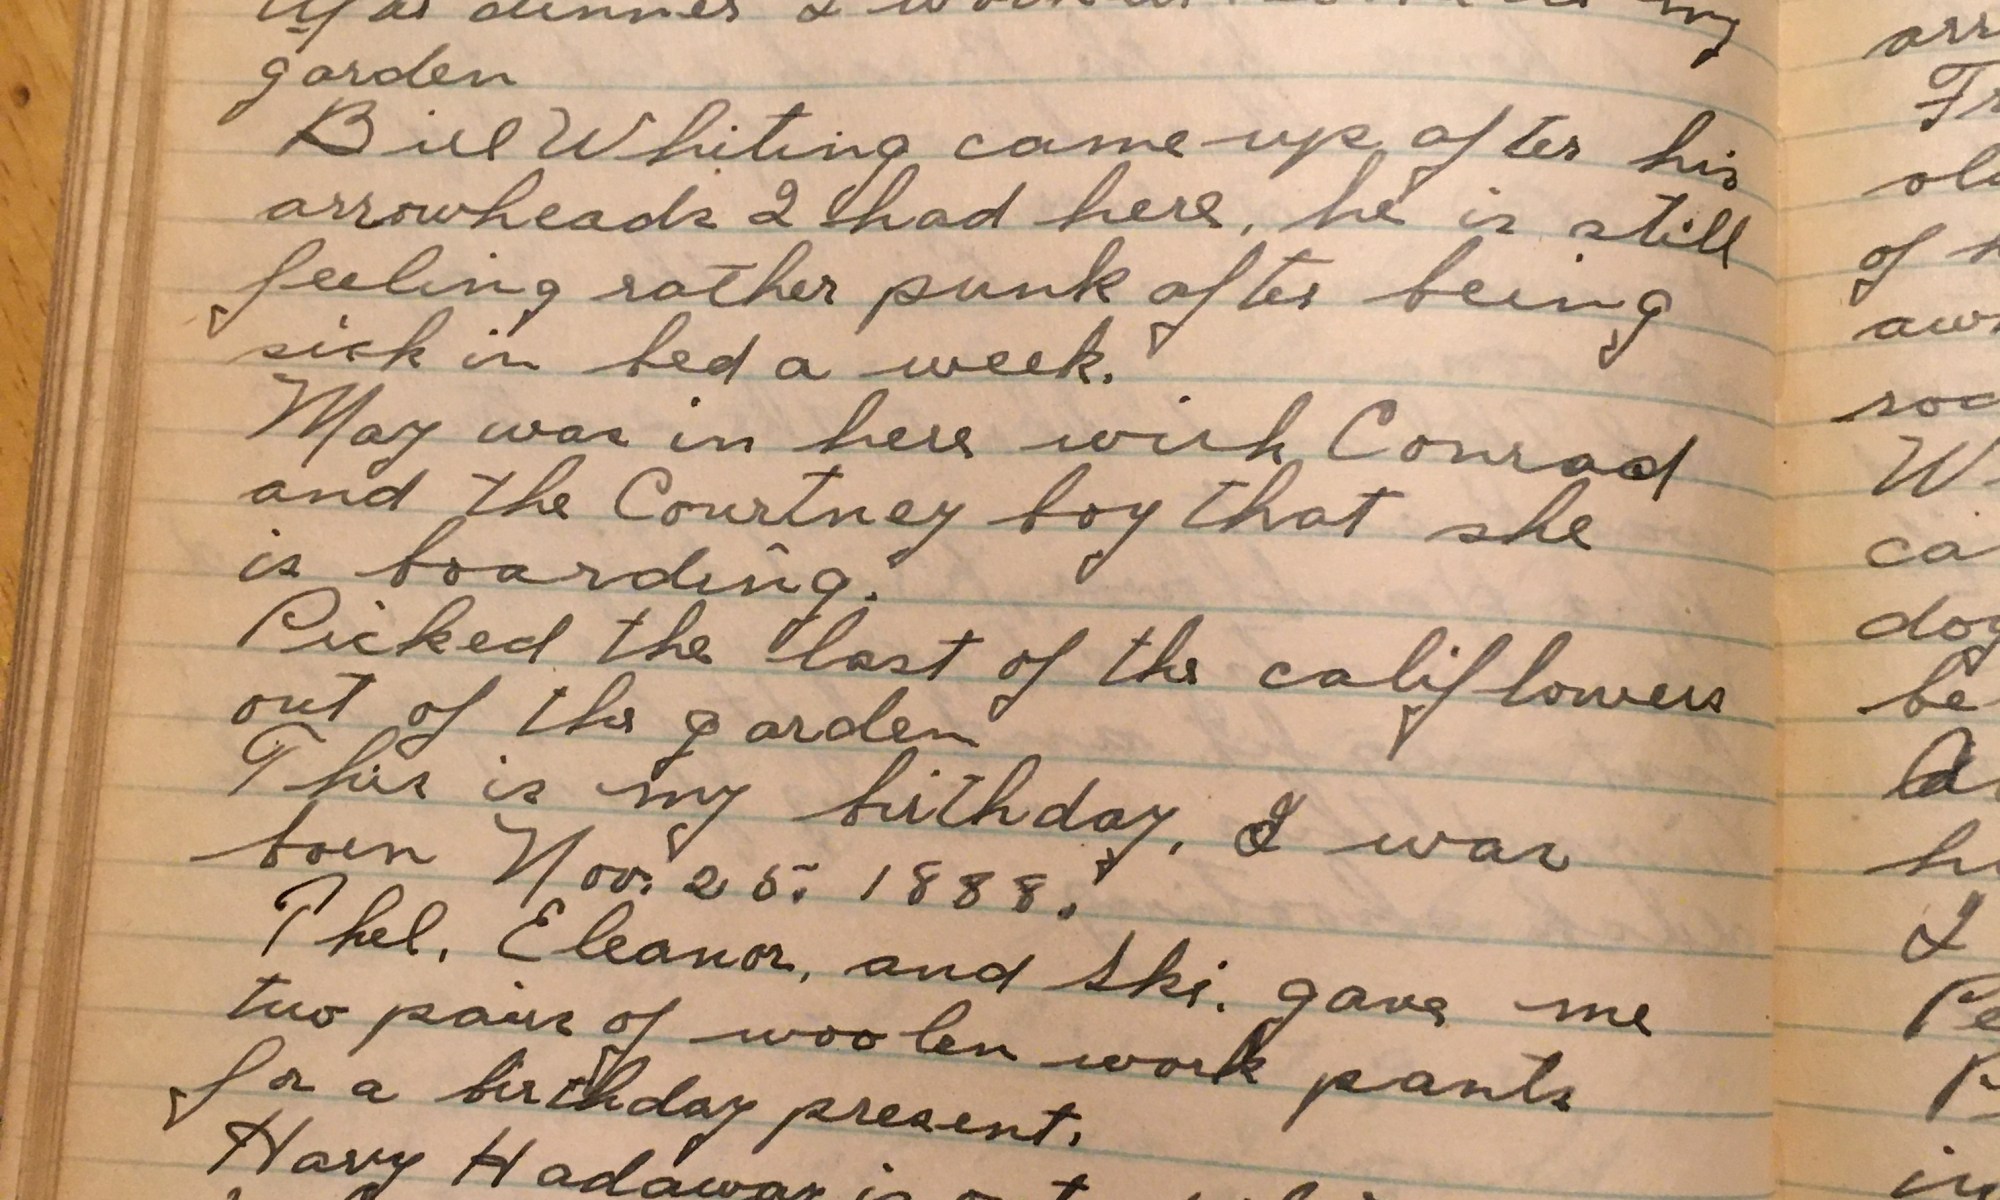 dinner I
my
garden
Bill Whiting came up after his
arrowheads I had here, he is still
feeling rather punk after being
sick in bed a week.
May was in here with Conrad
and the Courtney boy that she
is boarding.
Picked the last of the califlowers
out of the garden
This is my birthday, I was
born Nov. 25. 1888.
Thel, Eleanor, and Ski. gave me
two pairs of woolen work pants
for a birthday present.
Harry Hadaway is
arr
Fr
ol
of
aw
roc
W
ca
dog
be
h
I
Pe
in